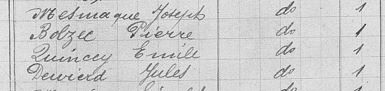 Mesmaque Joseph do 1
Bolzec Pierre do 1
Quincey Emile do 1
Dewierd Jules do 1